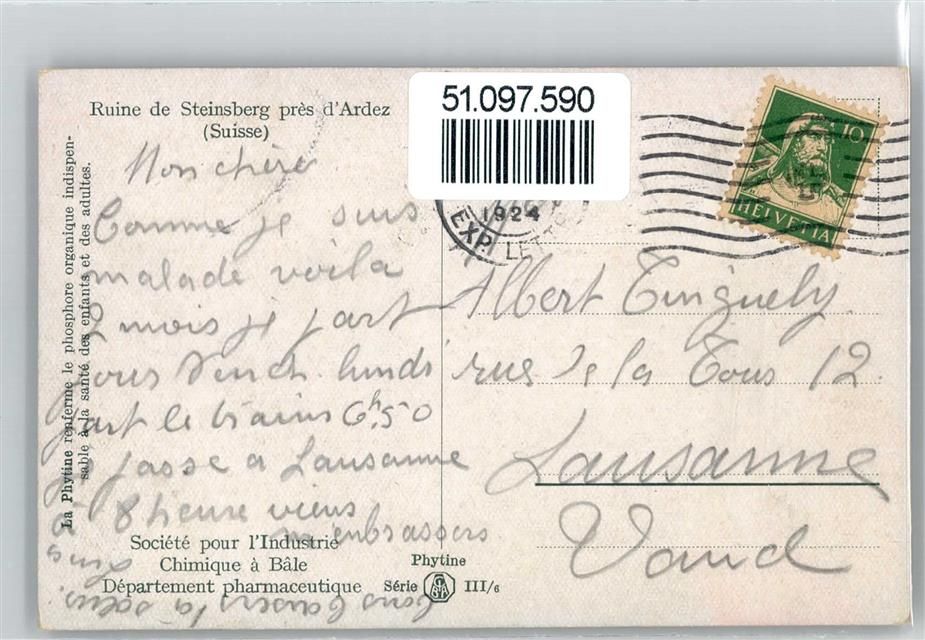 Ruine de Steinsberg près d'Ardez
(Suisse)
51.097.590
10
HELVETIA
1924
EXP. LETT
La Phytine renferme le phosphore organique indispen-
sable à la santé des enfants et des adultes.
Mon chère
Comme je suis
malade voila
2 mois je part
pour lundi
part le trains 6h50
passe a Lausanne
8 heure viens
m'enbrassers
Albert Tinguely
rue de la Tour 12
Lausanne
Vaud
Société pour l'Industrie
Chimique à Bâle
Département pharmaceutique
Phytine
Série III/6